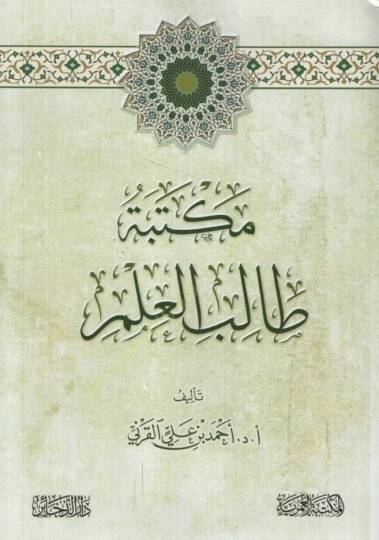 مَكْتَبَةُ
طَالِبِ العِلْمِ
تَأليف
أ.د. أحمَد بن عَليّ القَرني
المكتبة العمرية
دار الذخائر